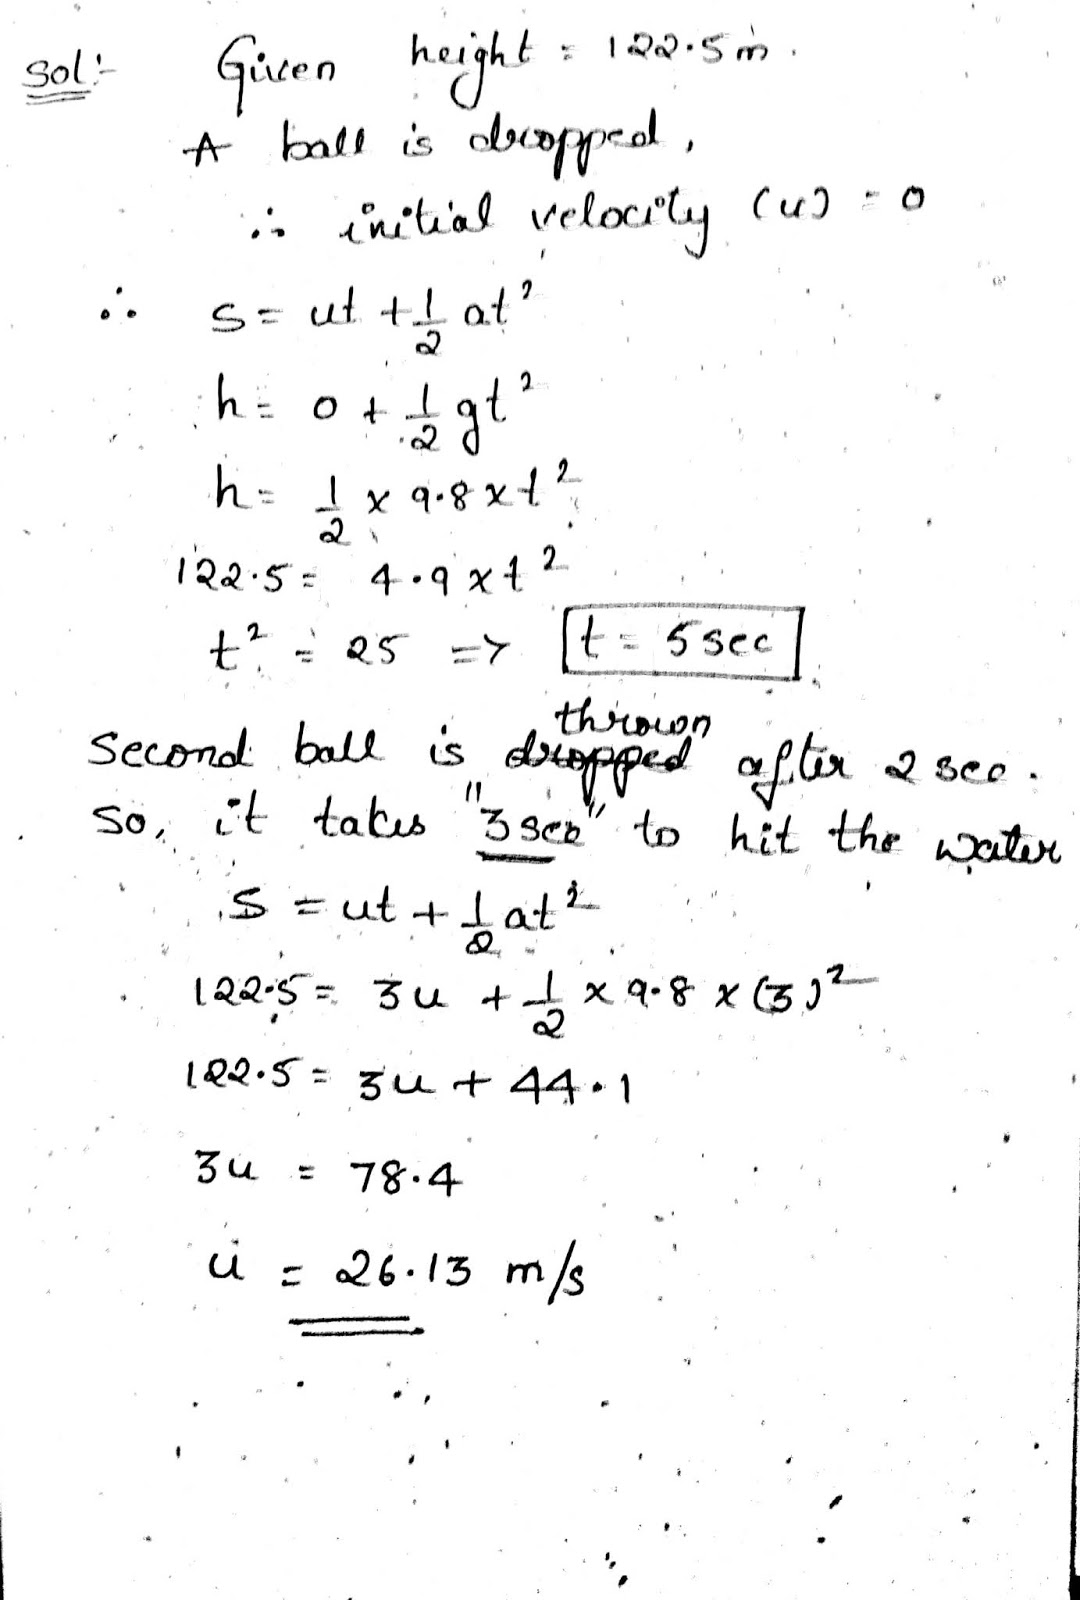 Sol:- Given height = 122.5 m.
A ball is dropped,
∴ initial velocity (u) = 0
∴ s = ut + 1/2 at²
h = 0 + 1/2 gt²
h = 1/2 x 9.8 x t²
122.5 = 4.9 x t²
t² = 25 => t = 5 sec
thrown
Second ball is dropped after 2 sec.
So, it takes "3 sec" to hit the water
S = ut + 1/2 at²
122.5 = 3u + 1/2 x 9.8 x (3)²
122.5 = 3u + 44.1
3u = 78.4
u = 26.13 m/s